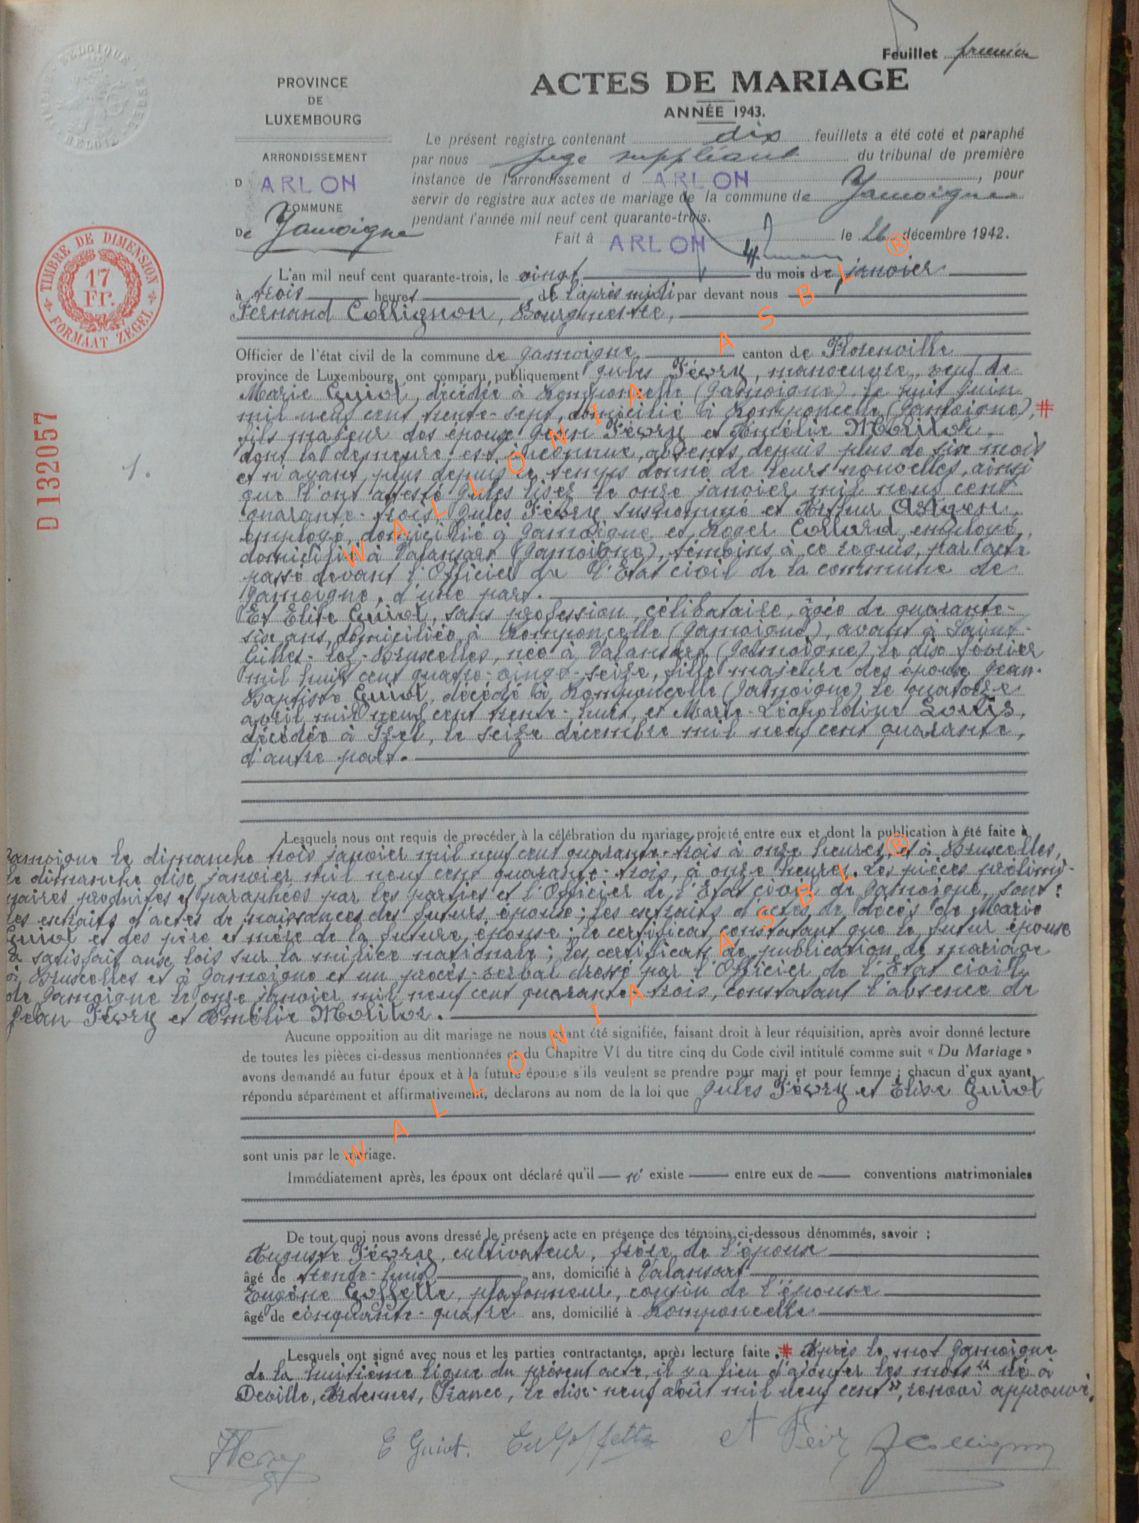 Feuillet premier
PROVINCE
DE
LUXEMBOURG
ARRONDISSEMENT
D ARLON
COMMUNE
De Jamoigne
TIMBRE DE DIMENSION
17
Fr.
FORMAAT ZEGEL
D 132057
1.
ACTES DE MARIAGE
ANNÉE 1943.
Le présent registre contenant dix feuillets a été coté et paraphé
par nous juge suppléant du tribunal de première
instance de l'arrondissement d ARLON, pour
servir de registre aux actes de mariage de la commune de Jamoigne
pendant l'année mil neuf cent quarante-trois.
Fait à ARLON le 26 décembre 1942.
L'an mil neuf cent quarante-trois, le vingt du mois de janvier
à trois heures, de l'après midi par devant nous
Fernand Collignon, Bourgmestre,
Officier de l'état civil de la commune de Jamoigne, canton de Florenville
province de Luxembourg, ont comparu publiquement Jules Févry, manoeuvre, veuf de
Marie Guiot, décédée à Romponcelle (Jamoigne), le huit juin
mil neuf cent trente-sept, domicilié à Romponcelle (Jamoigne), #
fils majeur des époux Jean Févry et Amélie Molitor
dont la demeure est inconnue, absents depuis plus de six mois
et n'ayant plus depuis ce temps donné de leurs nouvelles, ainsi
que l'ont attesté Jules lisez le onze janvier mil neuf cent
quarante-trois Jules Févry susnommé et Arthur
employé, domicilié à Jamoigne et Roger Collard, employé,
domicilié à Valansart (Jamoigne), témoins à ce requis, par acte
passé devant l'Officier de l'Etat civil de la commune de
Jamoigne, d'une part.
Et Elise Guiot, sans profession, célibataire, âgée de quarante-
six ans, domiciliée à Romponcelle (Jamoigne), avant à Saint-
Gilles-lez-Bruxelles, née à Valansart (Jamoigne) le dix février
mil huit cent quatre-vingt-seize, fille majeure des époux Jean-
Baptiste Guiot, décédé à Romponcelle (Jamoigne) le quatorze
avril mil neuf cent trente-huit, et Marie-Léopoldine
décédée à Izel, le seize décembre mil neuf cent quarante,
d'autre part.
Lesquels nous ont requis de procéder à la célébration du mariage projeté entre eux et dont la publication a été faite à
Jamoigne le dimanche trois janvier mil neuf cent quarante-trois à onze heures, et à Bruxelles,
le dimanche dix janvier mil neuf cent quarante-trois, à onze heures. Les pièces prélimi-
naires produites et paraphées par les parties et l'Officier de l'Etat civil de Jamoigne, sont:
les extraits d'actes de naissances des futurs époux; les extraits d'actes de décès de Marie
Guiot et des père et mère de la future épouse; le certificat constatant que le futur époux
a satisfait aux lois sur la milice nationale; les certificats de publication de mariage
à Bruxelles et à Jamoigne et un procès-verbal dressé par l'Officier de l'Etat civil
de Jamoigne le onze janvier mil neuf cent quarante-trois, constatant l'absence de
Jean Févry et Amélie Molitor.
Aucune opposition au dit mariage ne nous ayant été signifiée, faisant droit à leur réquisition, après avoir donné lecture
de toutes les pièces ci-dessus mentionnées et du Chapitre VI du titre cinq du Code civil intitulé comme suit « Du Mariage »
avons demandé au futur époux et à la future épouse s'ils veulent se prendre pour mari et pour femme ; chacun d'eux ayant
répondu séparément et affirmativement, déclarons au nom de la loi que Jules Févry et Elise Guiot
sont unis par le mariage.
Immédiatement après, les époux ont déclaré qu'il n'existe entre eux de conventions matrimoniales
De tout quoi nous avons dressé le présent acte en présence des témoins ci-dessous dénommés, savoir ;
Auguste Févry, cultivateur, frère de l'époux
âgé de trente-huit ans, domicilié à Valansart
Eugène Goffette, plafonneur, cousin de l'épouse
âgé de cinquante-quatre ans, domicilié à Romponcelle
Lesquels ont signé avec nous et les parties contractantes, après lecture faite. # Après le mot Jamoigne
de la huitième ligne du présent acte, il y a lieu d'ajouter les mots "né à
Deville, Ardennes, France, le dix-neuf août mil neuf cent", renvoi approuvé.
JFevry E Guiot. Eug Goffette A Févry FCollignon
WALLONIA ASBL ®
WALLONIA ASBL ®